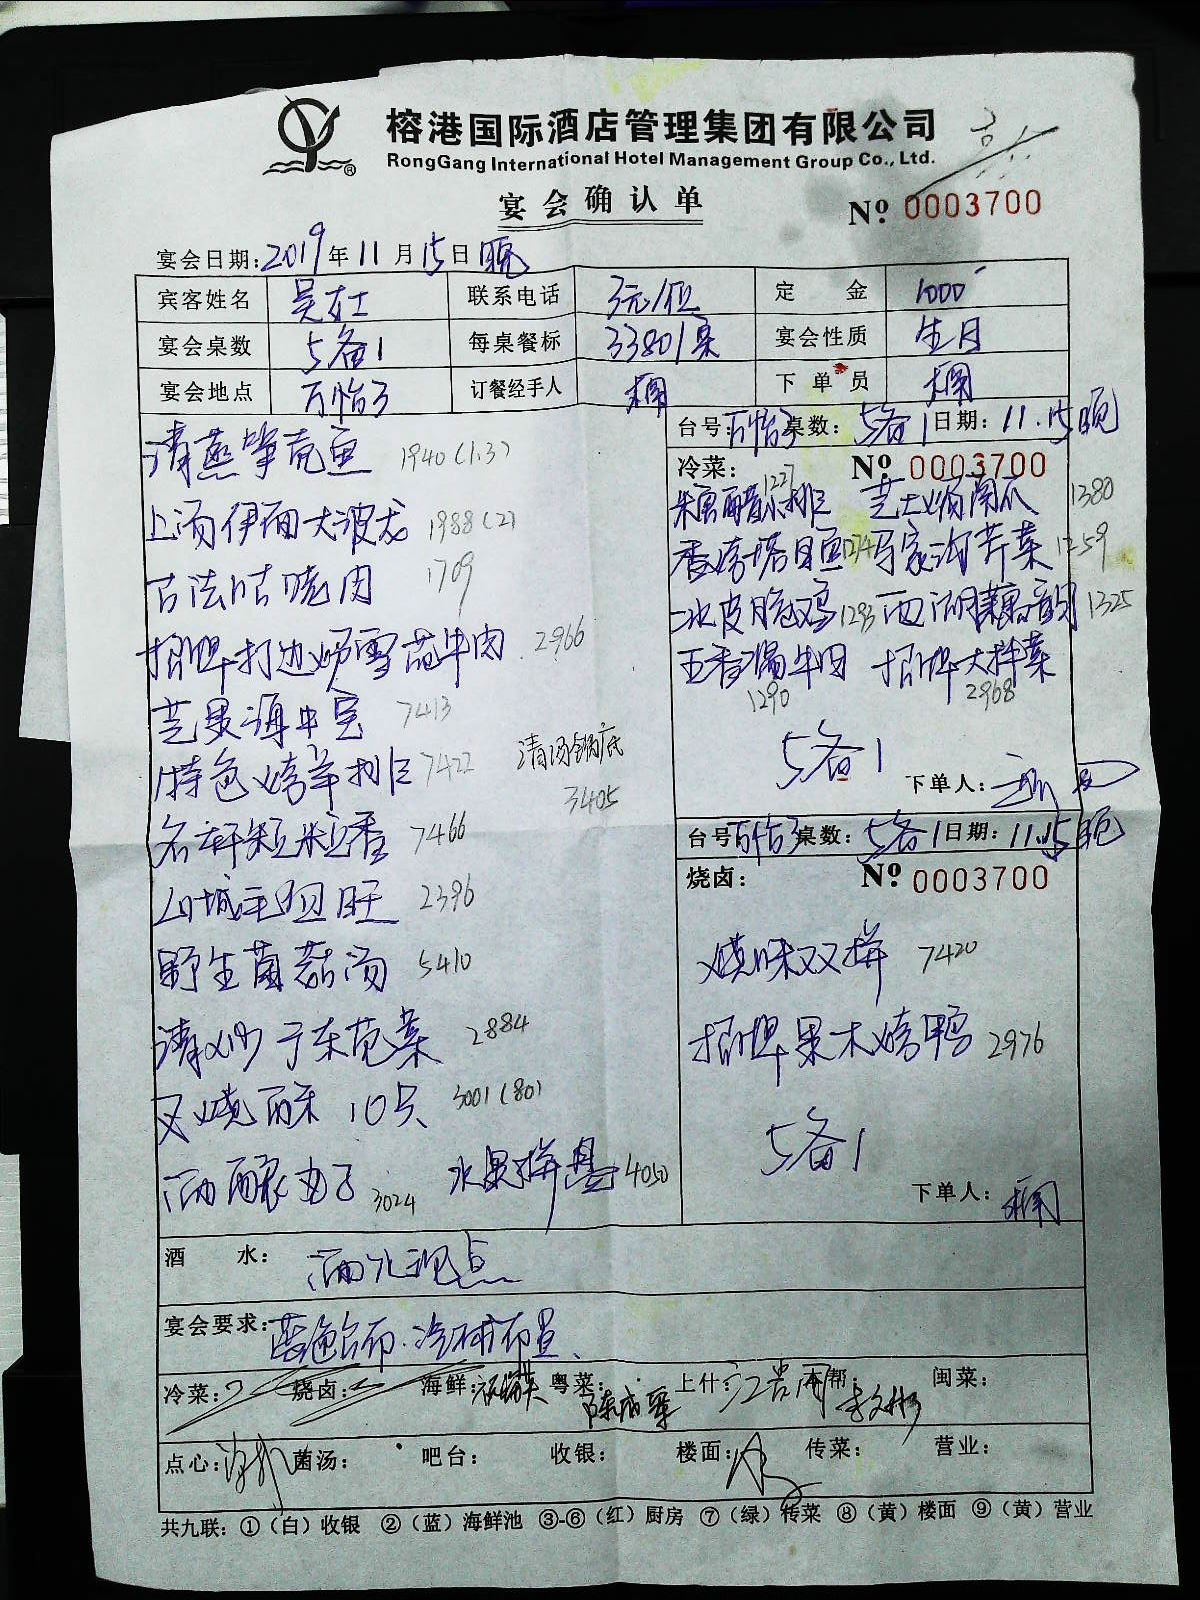 榕港国际酒店管理集团有限公司
RongGang International Hotel Management Group Co., Ltd.
宴会确认单
№ 0003700
宴会日期: 2019年11月15日 晚
宾客姓名 吴女士 联系电话 3元/位 定金 1000
宴会桌数 5备1 每桌餐标 3380/桌 宴会性质 生日
宴会地点 万怡3 订餐经手人 下单员
台号: 万怡3 桌数: 5备1 日期: 11.15晚
清蒸笋壳鱼 1940(1.3)
冷菜: № 0003700
上汤伊面大波龙 1988(2)
糖醋小排 1227 芝士焗南瓜 1380
古法咕咾肉 1709
香烤塔目鱼 1274 马家沟芹菜 1259
招牌打边炉雪花牛肉 2966
冰皮脆鸡 1293 西湖藕韵 1325
五香酱牛肉 1290 招牌大拌菜 2968
7413
特色烤羊排 7422 清汤锅底 3405
5备1
下单人:
7466
台号: 万怡3 桌数: 5备1 日期: 11.15晚
山城毛血旺 2396
烧卤: № 0003700
野生菌菇汤 5410
烧味双拼 7420
清炒广东苋菜 2884
招牌果木烤鸭 2976
叉烧酥 10只 3001(80)
5备1
酒酿丸子 3024 水果拼盘 4050
下单人:
酒水: 酒水现点
宴会要求: 蓝色台布·冷菜布置
冷菜: 烧卤: 海鲜: 粤菜: 上什: 本帮: 闽菜:
点心: 菌汤: 吧台: 收银: 楼面: 传菜: 营业:
共九联: ①(白)收银 ②(蓝)海鲜池 ③-⑥(红)厨房 ⑦(绿)传菜 ⑧(黄)楼面 ⑨(黄)营业